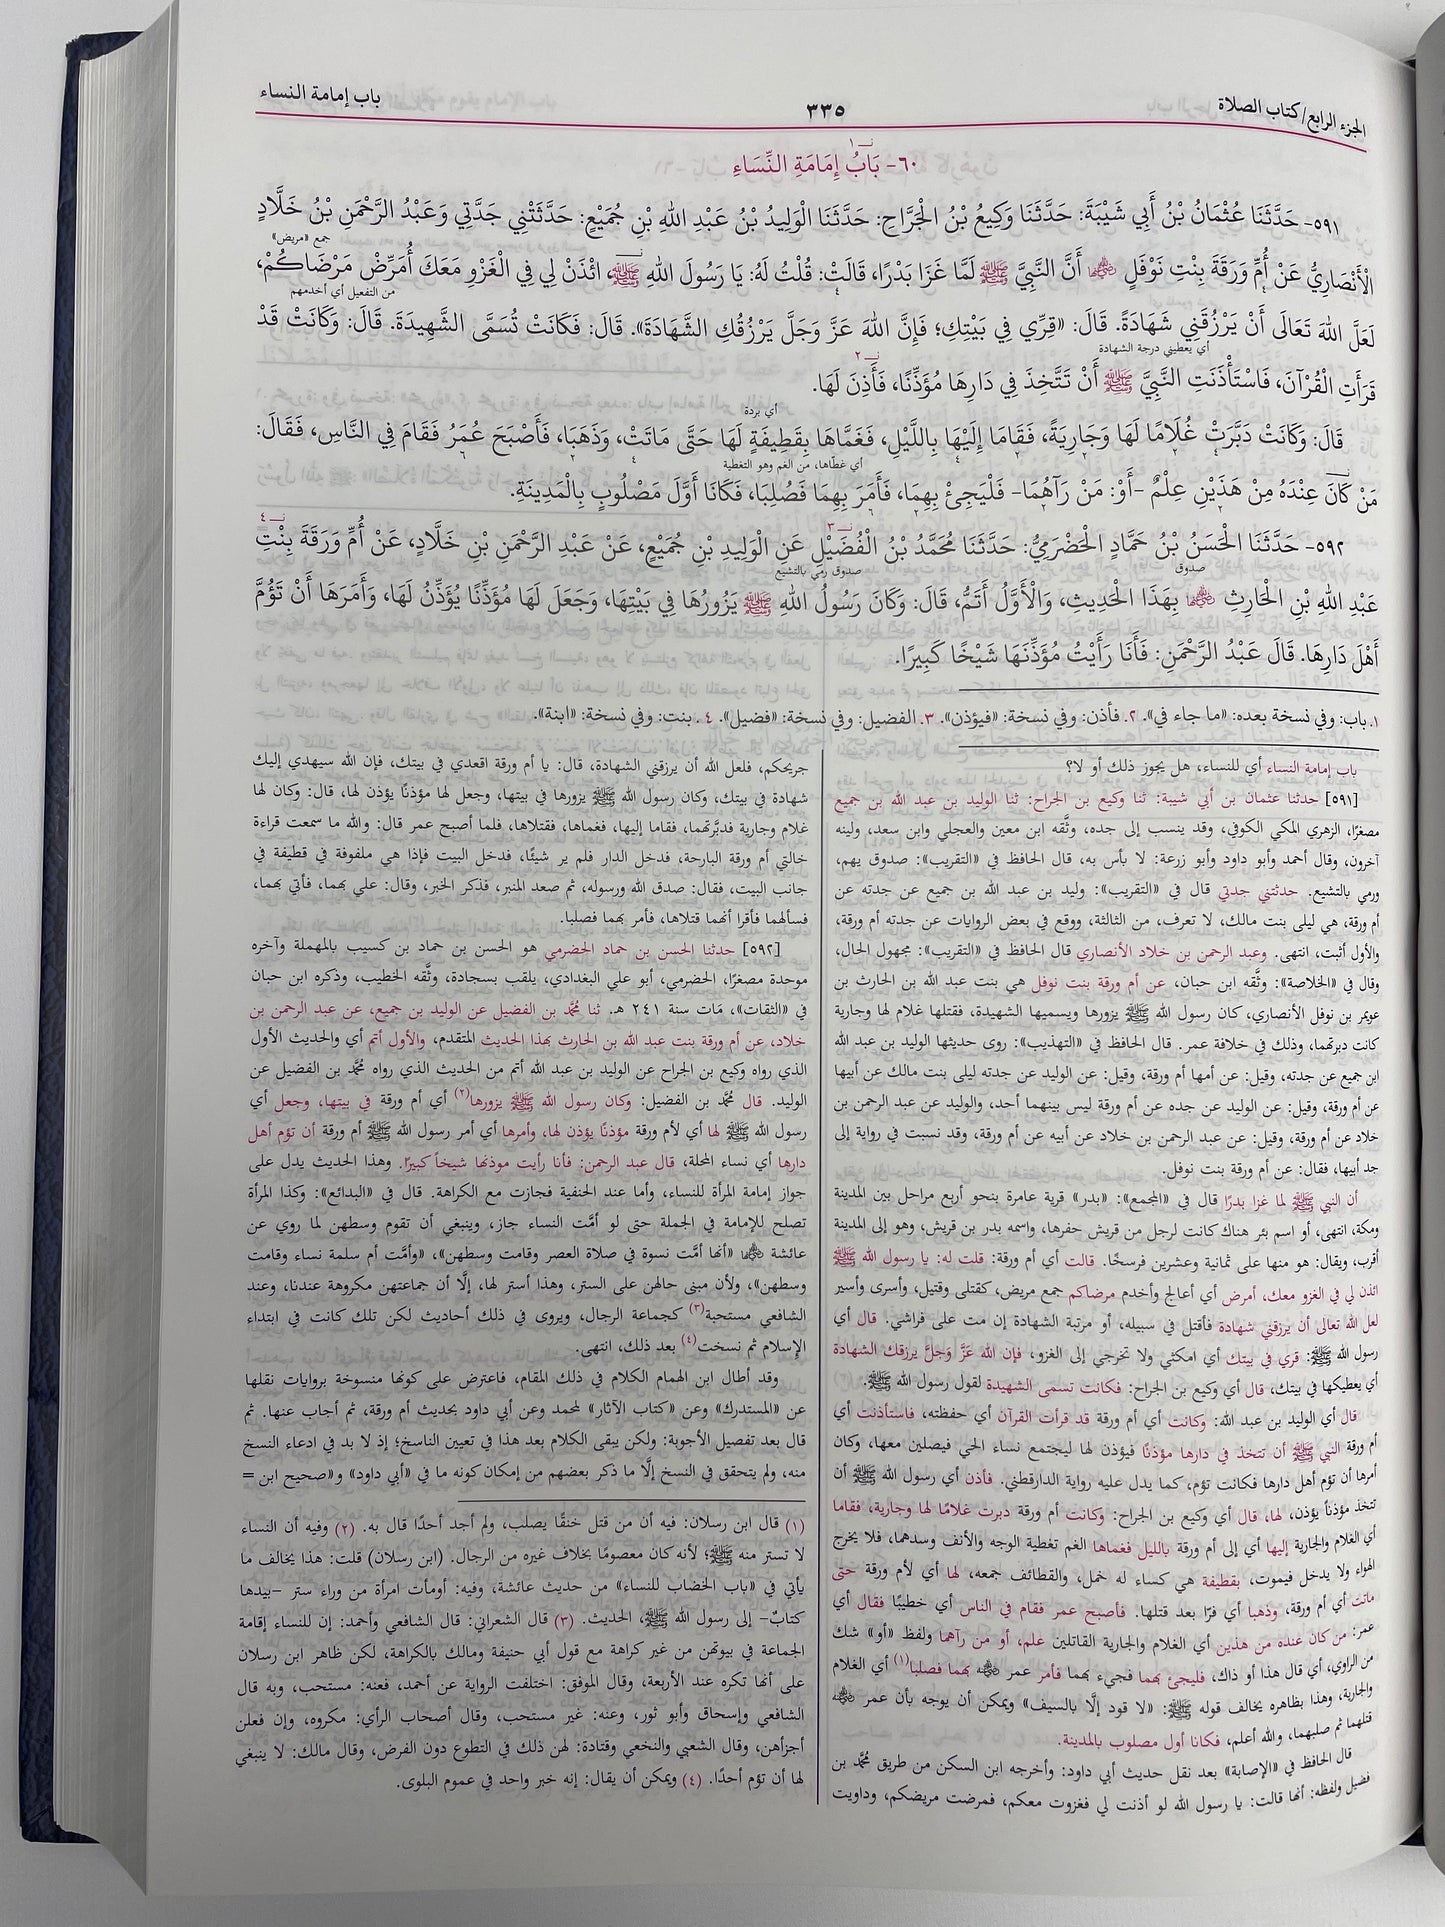 الجزء الرابع/كتاب الصلاة
٣٣٥
باب إمامة النساء
نـ ١
٦٠- بَابُ إِمَامَةِ النِّسَاءِ
٥٩١- حَدَّثَنَا عُثْمَانُ بْنُ أَبِي شَيْبَةَ: حَدَّثَنَا وَكِيعُ بْنُ الْجَرَّاحِ: حَدَّثَنَا الْوَلِيدُ بْنُ عَبْدِ اللهِ بْنِ جُمَيْعٍ: حَدَّثَتْنِي جَدَّتِي وَعَبْدُ الرَّحْمَنِ بْنُ خَلَّادٍ
جمع «مريض»
الْأَنْصَارِيُّ عَنْ أُمِّ وَرَقَةَ بِنْتِ نَوْفَلٍ ﵂ أَنَّ النَّبِيَّ ﷺ لَمَّا غَزَا بَدْرًا، قَالَتْ: قُلْتُ لَهُ: يَا رَسُولَ اللهِ ﷺ، ائْذَنْ لِي فِي الْغَزْوِ مَعَكَ أُمَرِّضْ مَرْضَاكُمْ،
من التفعيل أي أخدمهم
لَعَلَّ اللهَ تَعَالَى أَنْ يَرْزُقَنِي شَهَادَةً. قَالَ: «قِرِّي فِي بَيْتِكِ؛ فَإِنَّ اللهَ عَزَّ وَجَلَّ يَرْزُقُكِ الشَّهَادَةَ». قَالَ: فَكَانَتْ تُسَمَّى الشَّهِيدَةَ. قَالَ: وَكَانَتْ قَدْ
أي يعطيني درجة الشهادة
نـ ٢
قَرَأَتِ الْقُرْآنَ، فَاسْتَأْذَنَتِ النَّبِيَّ ﷺ أَنْ تَتَّخِذَ فِي دَارِهَا مُؤَذِّنًا، فَأَذِنَ لَهَا.
أي بردة
قَالَ: وَكَانَتْ دَبَّرَتْ غُلَامًا لَهَا وَجَارِيَةً، فَقَامَا إِلَيْهَا بِاللَّيْلِ، فَغَمَّاهَا بِقَطِيفَةٍ لَهَا حَتَّى مَاتَتْ، وَذَهَبَا، فَأَصْبَحَ عُمَرُ فَقَامَ فِي النَّاسِ، فَقَالَ:
أي غطّاها، من الغم وهو التغطية
مَنْ كَانَ عِنْدَهُ مِنْ هَذَيْنِ عِلْمٌ -أَوْ: مَنْ رَآهُمَا- فَلْيَجِئْ بِهِمَا، فَأَمَرَ بِهِمَا فَصُلِبَا، فَكَانَا أَوَّلَ مَصْلُوبٍ بِالْمَدِينَةِ.
نـ ٣
نـ ٤
٥٩٢- حَدَّثَنَا الْحَسَنُ بْنُ حَمَّادٍ الْحَضْرَمِيُّ: حَدَّثَنَا مُحَمَّدُ بْنُ الْفُضَيْلِ عَنِ الْوَلِيدِ بْنِ جُمَيْعٍ، عَنْ عَبْدِ الرَّحْمَنِ بْنِ خَلَّادٍ، عَنْ أُمِّ وَرَقَةَ بِنْتِ
صدوق
صدوق رمي بالتشيع
عَبْدِ اللهِ بْنِ الْحَارِثِ ﵂ بِهَذَا الْحَدِيثِ، وَالْأَوَّلُ أَتَمُّ، قَالَ: وَكَانَ رَسُولُ اللهِ ﷺ يَزُورُهَا فِي بَيْتِهَا، وَجَعَلَ لَهَا مُؤَذِّنًا يُؤَذِّنُ لَهَا، وَأَمَرَهَا أَنْ تَؤُمَّ
أَهْلَ دَارِهَا. قَالَ عَبْدُ الرَّحْمَنِ: فَأَنَا رَأَيْتُ مُؤَذِّنَهَا شَيْخًا كَبِيرًا.
١. باب: وفي نسخة بعده: «ما جاء في». ٢. فأذن: وفي نسخة: «فيؤذن». ٣. الفضيل: وفي نسخة: «فضيل». ٤. بنت: وفي نسخة: «ابنة».
باب إمامة النساء أي للنساء، هل يجوز ذلك أو لا؟
[٥٩١] حدثنا عثمان بن أبي شيبة: ثنا وكيع بن الجراح: ثنا الوليد بن عبد الله بن جميع
مصغرًا، الزهري المكي الكوفي، وقد ينسب إلى جده، وثَّقه ابن معين والعجلي وابن سعد، ولينه
آخرون، وقال أحمد وأبو داود وأبو زرعة: لا بأس به، قال الحافظ في «التقريب»: صدوق يهم،
ورمي بالتشيع. حدثتني جدتي قال في «التقريب»: وليد بن عبد الله بن جميع عن جدته عن
أم ورقة، هي ليلى بنت مالك، لا تعرف، من الثالثة، ووقع في بعض الروايات عن جدته أم ورقة،
والأول أثبت، انتهى. وعبد الرحمن بن خلاد الأنصاري قال الحافظ في «التقريب»: مجهول الحال،
وقال في «الخلاصة»: وثَّقه ابن حبان، عن أم ورقة بنت نوفل هي بنت عبد الله بن الحارث بن
عويمر بن نوفل الأنصاري، كان رسول الله ﷺ يزورها ويسميها الشهيدة، فقتلها غلام لها وجارية
كانت دبرتهما، وذلك في خلافة عمر. قال الحافظ في «التهذيب»: روى حديثها الوليد بن عبد الله
ابن جميع عن جدته، وقيل: عن أمها أم ورقة، وقيل: عن الوليد عن جدته ليلى بنت مالك عن أبيها
عن أم ورقة، وقيل: عن الوليد عن جده عن أم ورقة ليس بينهما أحد، والوليد عن عبد الرحمن بن
خلاد عن أم ورقة، وقيل: عن عبد الرحمن بن خلاد عن أبيه عن أم ورقة، وقد نسبت في رواية إلى
جد أبيها، فقال: عن أم ورقة بنت نوفل.
أن النبي ﷺ لما غزا بدرًا قال في «المجمع»: «بدر» قرية عامرة بنحو أربع مراحل بين المدينة
ومكة، انتهى، أو اسم بئر هناك كانت لرجل من قريش حفرها، واسمه بدر بن قريش، وهو إلى المدينة
أقرب، ويقال: هو منها على ثمانية وعشرين فرسخًا. قالت أي أم ورقة: قلت له: يا رسول الله ﷺ
ائذن لي في الغزو معك، أمرض أي أعالج وأخدم مرضاكم جمع مريض، كقتلى وقتيل، وأسرى وأسير
لعل الله تعالى أن يرزقني شهادة فأقتل في سبيله، أو مرتبة الشهادة إن مت على فراشي. قال أي
رسول الله ﷺ: قري في بيتك أي امكثي ولا تخرجي إلى الغزو، فإن الله عَزَّ وَجَلَّ يرزقك الشهادة
أي يعطيكها في بيتك، قال أي وكيع بن الجراح: فكانت تسمى الشهيدة لقول رسول الله ﷺ.
قال أي الوليد بن عبد الله: وكانت أي أم ورقة قد قرأت القرآن أي حفظته، فاستأذنت أي
أم ورقة النبي ﷺ أن تتخذ في دارها مؤذنًا فيؤذن لها ليجتمع نساء الحي فيصلين معها، وكان
أمرها أن تؤم أهل دارها فكانت تؤم، كما يدل عليه رواية الدارقطني. فأذن أي رسول الله ﷺ أن
تتخذ مؤذناً يؤذن، لها، قال أي وكيع بن الجراح: وكانت أم ورقة دبرت غلامًا لها وجارية، فقاما
أي الغلام والجارية إليها أي إلى أم ورقة بالليل فغماها الغم تغطية الوجه والأنف وسدهما، فلا يخرج
الهواء ولا يدخل فيموت، بقطيفة هي كساء له خمل، والقطائف جمعه، لها أي لأم ورقة حتى
ماتت أي أم ورقة، وذهبا أي فرّا بعد قتلها. فأصبح عمر فقام في الناس أي خطيبًا فقال أي
عمر: من كان عنده من هذين أي الغلام والجارية القاتلين علم، أو من رآهما ولفظ «أو» شك
من الراوي، أي قال هذا أو ذاك، فليجئ بهما فجيء بهما فأمر عمر ﵁ بهما فصلبا(١) أي الغلام
والجارية، وهذا بظاهره يخالف قوله ﷺ: «لا قود إلَّا بالسيف» ويمكن أن يوجه بأن عمر ﵁
قتلهما ثم صلبهما، والله أعلم، فكانا أول مصلوب بالمدينة.
قال الحافظ في «الإصابة» بعد نقل حديث أبي داود: وأخرجه ابن السكن من طريق محمَّد بن
فضيل ولفظه: أنها قالت: يا رسول الله لو أذنت لي فغزوت معكم، فمرضت مريضكم، وداويت
جريحكم، فلعل الله أن يرزقني الشهادة، قال: يا أم ورقة اقعدي في بيتك، فإن الله سيهدي إليك
شهادة في بيتك، وكان رسول الله ﷺ يزورها في بيتها، وجعل لها مؤذنًا يؤذن لها، قال: وكان لها
غلام وجارية فدبَّرتهما، فقاما إليها، فغماها، فقتلاها، فلما أصبح عمر قال: والله ما سمعت قراءة
خالتي أم ورقة البارحة، فدخل الدار فلم ير شيئًا، فدخل البيت فإذا هي ملفوفة في قطيفة في
جانب البيت، فقال: صدق الله ورسوله، ثم صعد المنبر، فذكر الخبر، وقال: علي بهما، فأتي بهما،
فسألهما فأقرا أنهما قتلاها، فأمر بهما فصلبا.
[٥٩٢] حدثنا الحسن بن حماد الحضرمي هو الحسن بن حماد بن كسيب بالمهملة وآخره
موحدة مصغرًا، الحضرمي، أبو علي البغدادي، يلقب بسجادة، وثَّقه الخطيب، وذكره ابن حبان
في «الثقات»، مَات سنة ٢٤١ هـ. ثنا محمَّد بن الفضيل عن الوليد بن جميع، عن عبد الرحمن بن
خلاد، عن أم ورقة بنت عبد الله بن الحارث بهذا الحديث المتقدم، والأول أتم أي والحديث الأول
الذي رواه وكيع بن الجراح عن الوليد بن عبد الله أتم من الحديث الذي رواه محمَّد بن الفضيل عن
الوليد. قال محمَّد بن الفضيل: وكان رسول الله ﷺ يزورها(٢) أي أم ورقة في بيتها، وجعل أي
رسول الله ﷺ لها أي لأم ورقة مؤذنًا يؤذن لها، وأمرها أي أمر رسول الله ﷺ أم ورقة أن تؤم أهل
دارها أي نساء المحلة، قال عبد الرحمن: فأنا رأيت موذنها شيخاً كبيرًا. وهذا الحديث يدل على
جواز إمامة المرأة للنساء، وأما عند الحنفية فجازت مع الكراهة. قال في «البدائع»: وكذا المرأة
تصلح للإمامة في الجملة حتى لو أمَّت النساء جاز، وينبغي أن تقوم وسطهن لما روي عن
عائشة ﵂ «أنها أمَّت نسوة في صلاة العصر وقامت وسطهن»، «وأمَّت أم سلمة نساء وقامت
وسطهن»، ولأن مبنى حالهن على الستر، وهذا أستر لها، إلَّا أن جماعتهن مكروهة عندنا، وعند
الشافعي مستحبة(٣) كجماعة الرجال، ويروى في ذلك أحاديث لكن تلك كانت في ابتداء
الإسلام ثم نسخت(٤) بعد ذلك، انتهى.
وقد أطال ابن الهمام الكلام في ذلك المقام، فاعترض على كونها منسوخة بروايات نقلها
عن «المستدرك» وعن «كتاب الآثار» لمحمد وعن أبي داود بحديث أم ورقة، ثم أجاب عنها. ثم
قال بعد تفصيل الأجوبة: ولكن يبقى الكلام بعد هذا في تعيين الناسخ؛ إذ لا بد في ادعاء النسخ
منه، ولم يتحقق في النسخ إلَّا ما ذكر بعضهم من إمكان كونه ما في «أبي داود» و«صحيح ابن =
(١) قال ابن رسلان: فيه أن من قتل خنقًا يصلب، ولم أجد أحدًا قال به. (٢) وفيه أن النساء
لا تستر منه ﷺ؛ لأنه كان معصومًا بخلاف غيره من الرجال. (ابن رسلان) قلت: هذا يخالف ما
يأتي في «باب الخضاب للنساء» من حديث عائشة، وفيه: أومأت امرأة من وراء ستر -بيدها
كتابٌ- إلى رسول الله ﷺ، الحديث. (٣) قال الشعراني: قال الشافعي وأحمد: إن للنساء إقامة
الجماعة في بيوتهن من غير كراهة مع قول أبي حنيفة ومالك بالكراهة، لكن ظاهر ابن رسلان
على أنها تكره عند الأربعة، وقال الموفق: اختلفت الرواية عن أحمد، فعنه: مستحب، وبه قال
الشافعي وإسحاق وأبو ثور، وعنه: غير مستحب، وقال أصحاب الرأي: مكروه، وإن فعلن
أجزأهن، وقال الشعبي والنخعي وقتادة: لهن ذلك في التطوع دون الفرض، وقال مالك: لا ينبغي
لها أن تؤم أحدًا. (٤) ويمكن أن يقال: إنه خبر واحد في عموم البلوى.